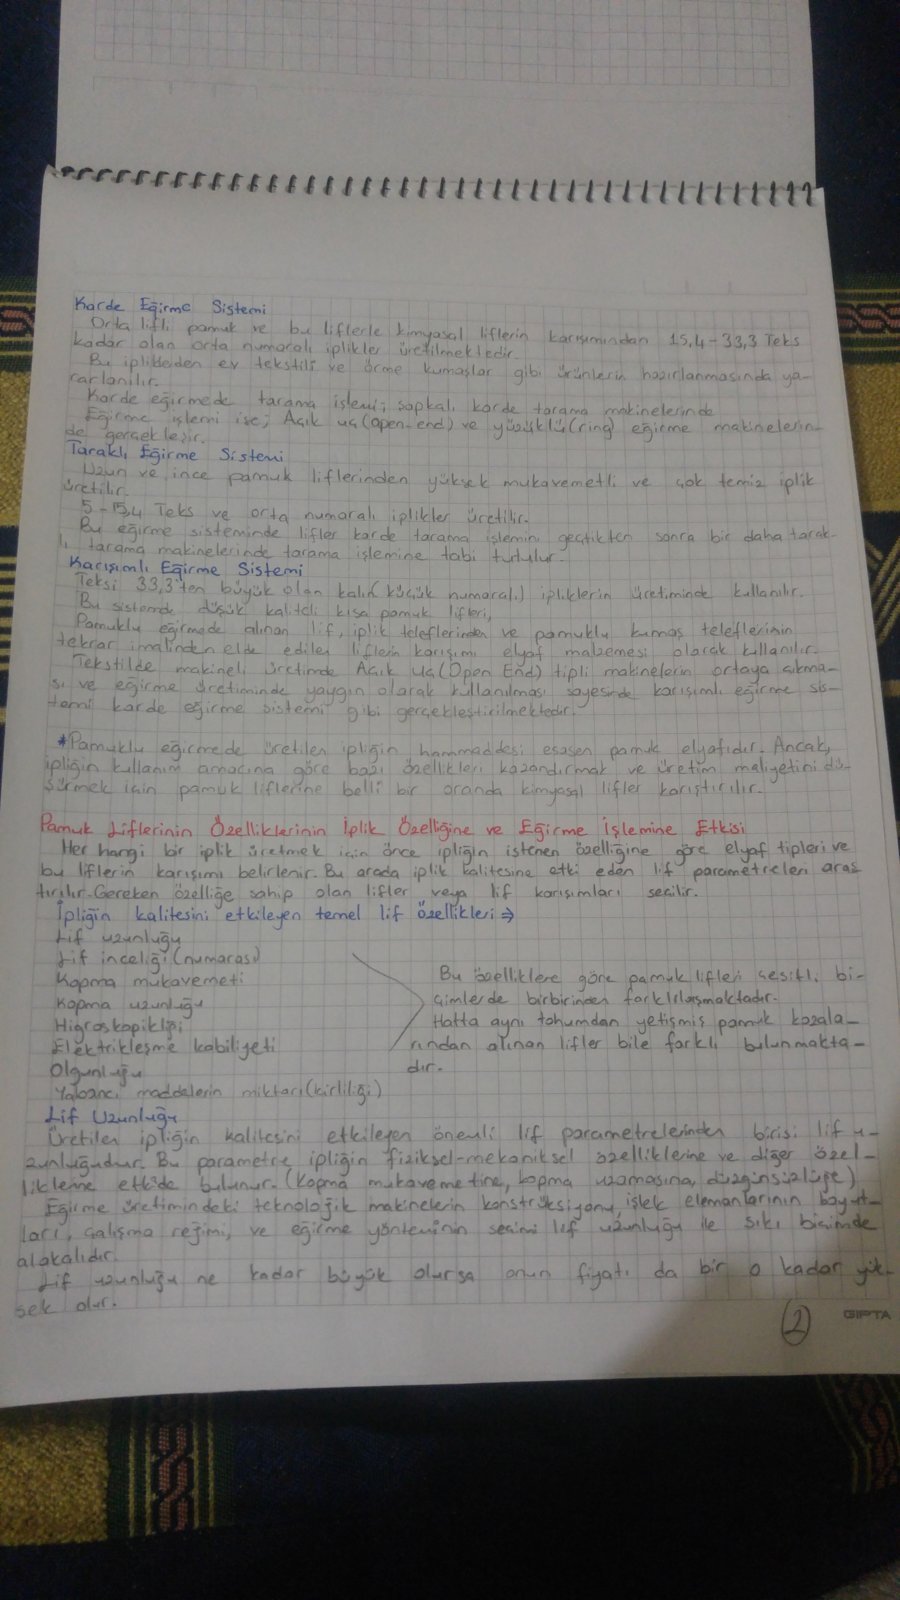 Karde Eğirme Sistemi
Orta lifli pamuk ve bu liflerle kimyasal liflerin karışımından 15,4-33,3 Teks
kadar olan orta numaralı iplikler üretilmektedir.
Bu iplikleden ev tekstili ve örme kumaşlar gibi ürünlerin hazırlanmasında ya-
rarlanılır.
Karde eğirmede tarama işlemi; şapkalı karde tarama makinelerinde
Eğirme işlemi ise; Açık uç(open-end) ve yüzüklü(ring) eğirme makinelerin-
de gerçekleşir.
Taraklı Eğirme Sistemi
Uzun ve ince pamuk liflerinden yüksek mukavemetli ve çok temiz iplik
üretilir.
5-15,4 Teks ve orta numaralı iplikler üretilir.
Bu eğirme sisteminde lifler karde tarama işlemini geçtikten sonra bir daha tarak-
lı tarama makinelerinde tarama işlemine tabi tutulur.
Karışımlı Eğirme Sistemi
Teksi 33,3'ten büyük olan kalın(küçük numaralı) ipliklerin üretiminde kullanılır.
Bu sistemde düşük kaliteli kısa pamuk lifleri,
Pamuklu eğirmede alınan lif, iplik teleflerinden ve pamuklu kumaş teleflerinin
tekrar imalinden elde edilen liflerin karışımı elyaf malzemesi olarak kullanılır.
Tekstilde makineli üretimde Açık Uç(Open End) tipli makinelerin ortaya çıkma-
sı ve eğirme üretiminde yaygın olarak kullanılması sayesinde karışımlı eğirme sis-
temi karde eğirme sistemi gibi gerçekleştirilmektedir.
*Pamuklu eğirmede üretilen ipliğin hammaddesi esasen pamuk elyafıdır. Ancak,
ipliğin kullanım amacına göre bazı özellikleri kazandırmak ve üretim maliyetini dü-
şürmek için pamuk liflerine belli bir oranda kimyasal lifler karıştırılır.
Pamuk Liflerinin Özelliklerinin İplik Özelliğine ve Eğirme İşlemine Etkisi
Her hangi bir iplik üretmek için önce ipliğin istenen özelliğine göre elyaf tipleri ve
bu liflerin karışımı belirlenir. Bu arada iplik kalitesine etki eden lif parametreleri araş
tırılır. Gereken özelliğe sahip olan lifler veya lif karışımları seçilir.
İpliğin kalitesini etkileyen temel lif özellikleri ⇒
Lif uzunluğu
Lif inceliği(numarası)
Kopma mukavemeti
Kopma uzunluğu
Higroskopikliği
Elektrikleşme kabiliyeti
Olgunluğu
Yabancı maddelerin miktarı(kirliliği)
Bu özelliklere göre pamuk lifleri çeşitli bi-
çimlerde birbirinden farklılaşmaktadır.
Hatta aynı tohumdan yetişmiş pamuk kozala-
rından alınan lifler bile farklı bulunmakta-
dır.
Lif Uzunluğu
Üretilen ipliğin kalitesini etkileyen önemli lif parametrelerinden birisi lif u-
zunluğudur. Bu parametre ipliğin fiziksel-mekaniksel özelliklerine ve diğer özel-
liklerine etkide bulunur. (Kopma mukavemetine, kopma uzamasına, düzgünsüzlüğe)
Eğirme üretimindeki teknolojik makinelerin konstrüksiyonu, işlek elemanlarının boyut-
ları, çalışma rejimi, ve eğirme yönteminin seçimi lif uzunluğu ile sıkı biçimde
alakalıdır.
Lif uzunluğu ne kadar büyük olursa onun fiyatı da bir o kadar yük-
sek olur.
2
GIPTA